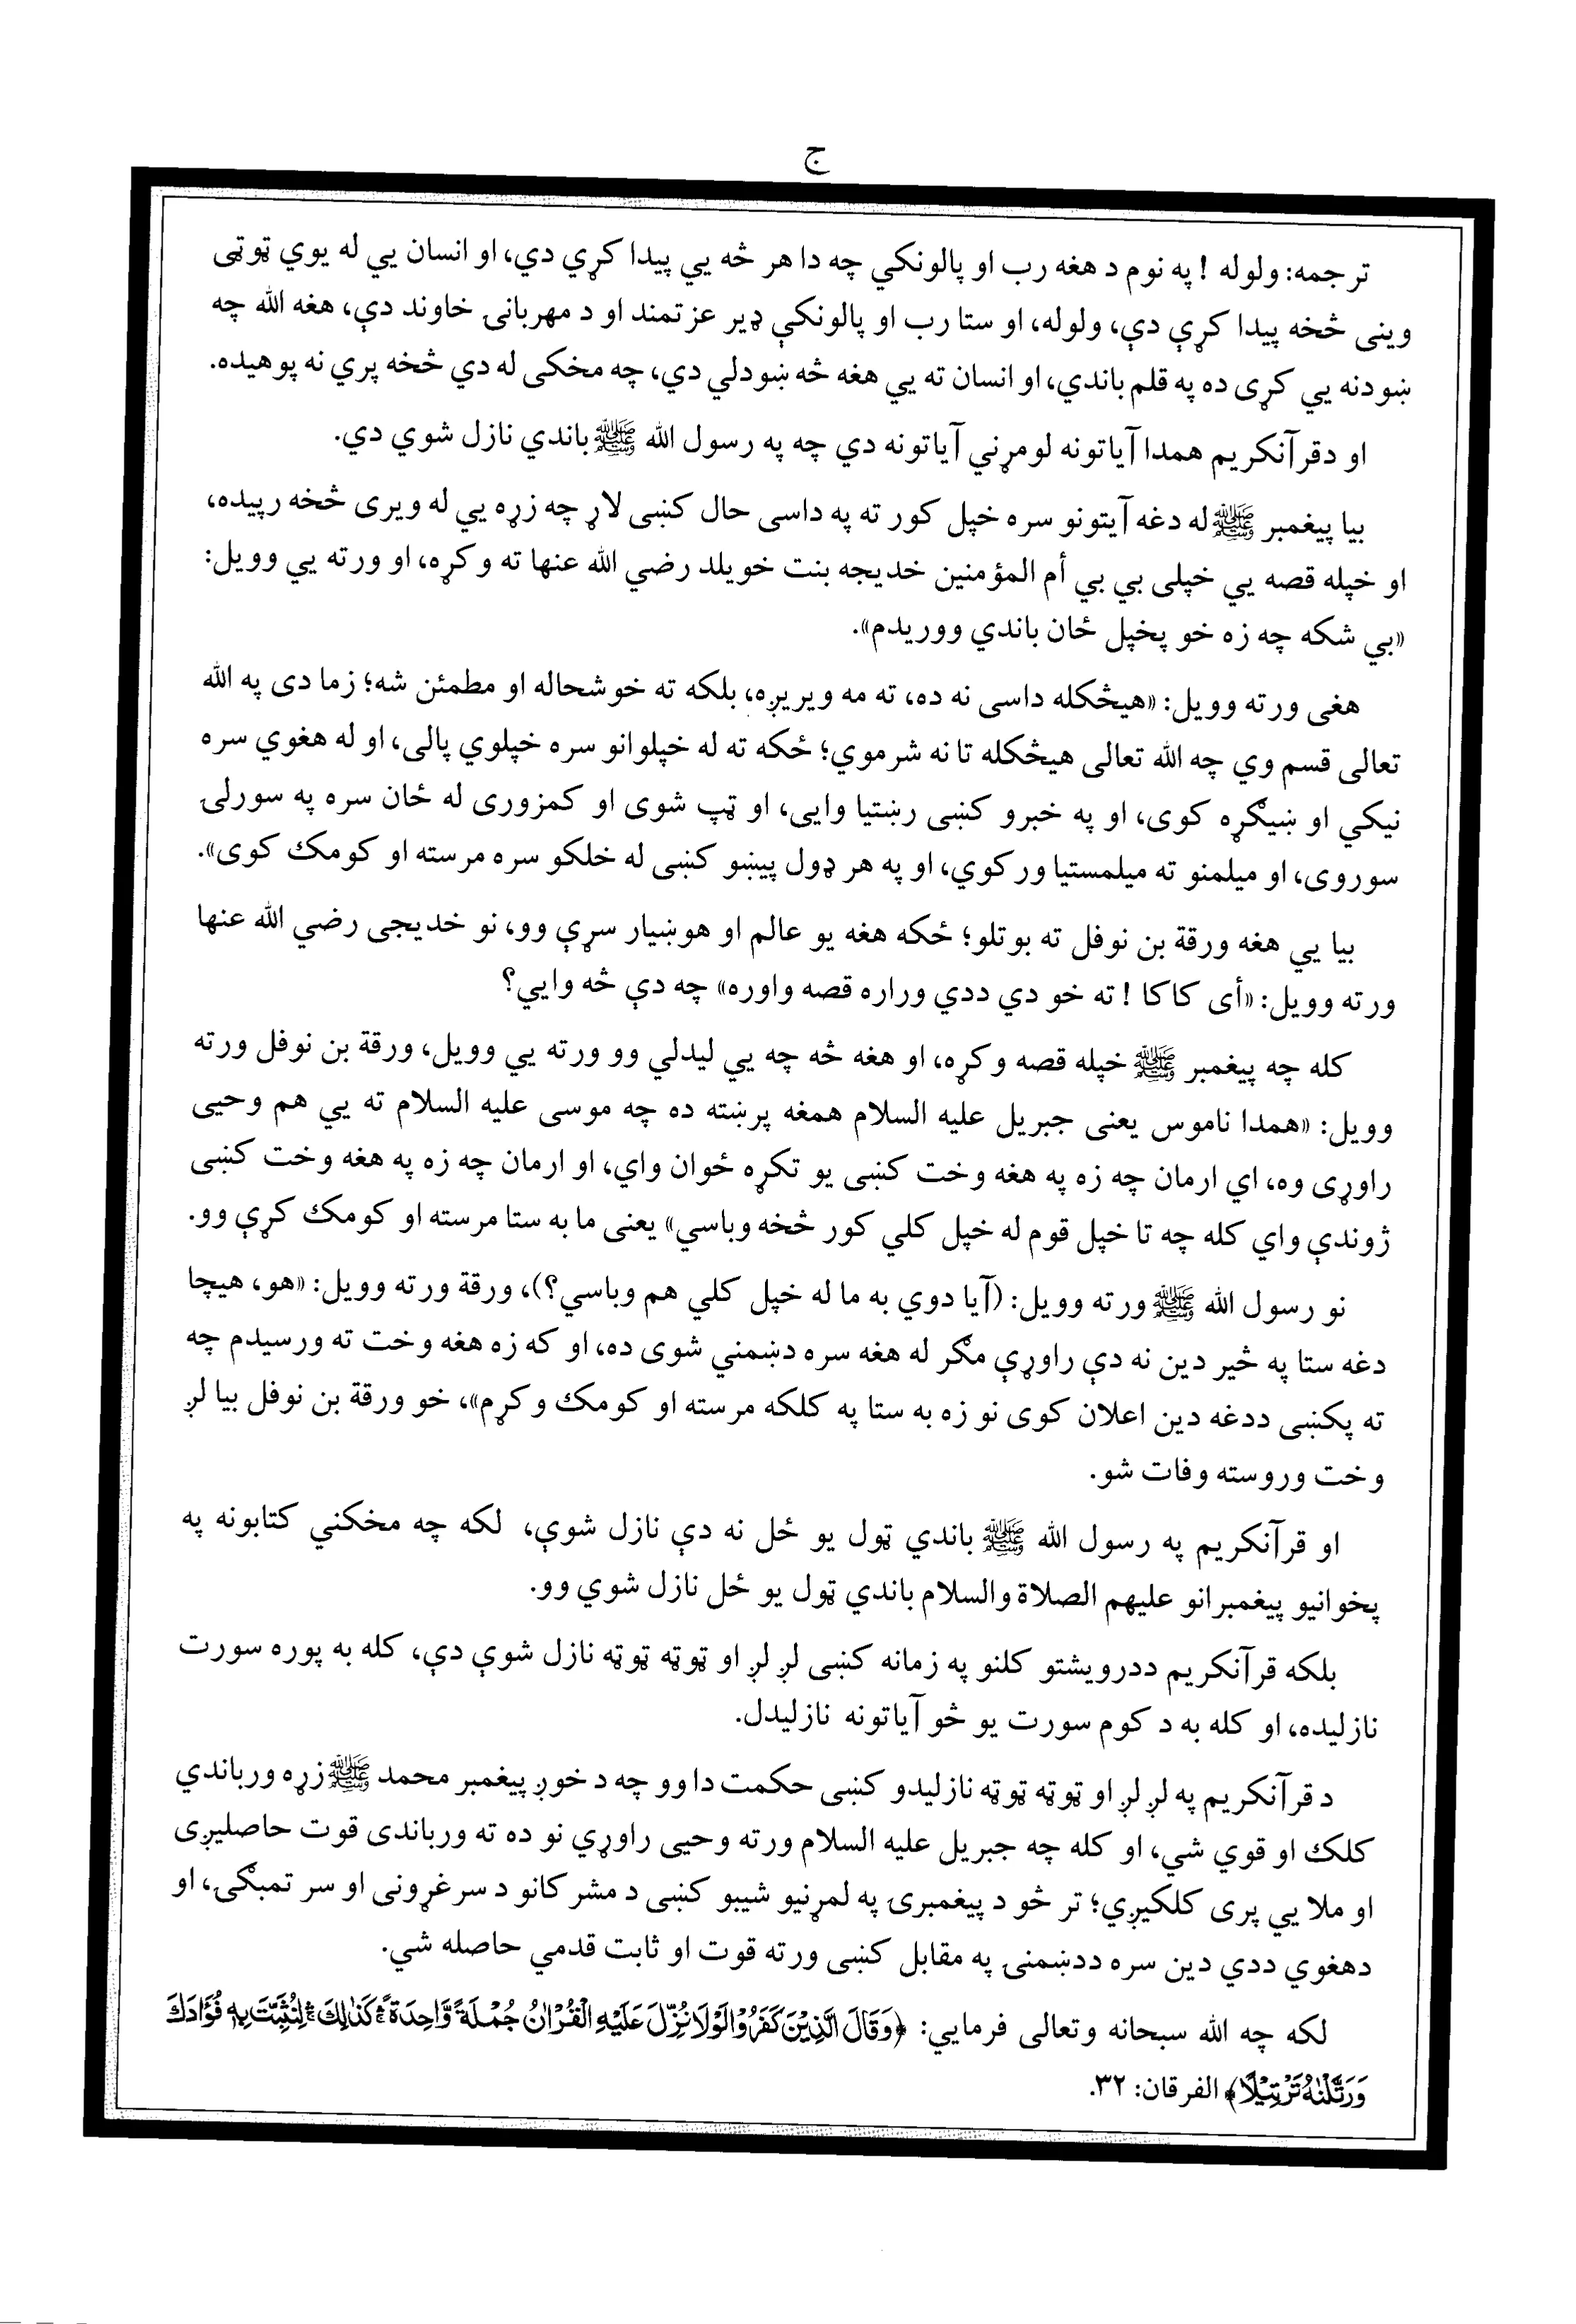 ج
ترجمه: ولوله ! په نوم د هغه رب او پالونکي چه دا هر څه يي پيدا کړي دي، او انسان يي له يوي ټوټی
وینی څخه پيدا کړې دې، ولوله، او ستا رب او پالونکې ډير عزتمند او د مهربانۍ خاوند دې، هغه الله چه
ښودنه يي کړی ده په قلم باندي، او انسان ته يي هغه څه ښودلي دي، چه مخکی له دي څخه پري نه پوهيده.
او دقرآنکريم همدا آياتونه لومړني آياتونه دي چه په رسول الله ﷺ باندي نازل شوي دي.
بيا پيغمبر ﷺ له دغه آيتونو سره خپل کور ته په داسی حال کښی لاړ چه زړه يي له ويری څخه رپيده،
او خپله قصه يي خپلی بي بي أم المؤمنين خديجه بنت خويلد رضي الله عنها ته وکړه، او ورته يي وويل:
«بي شکه چه زه خو پخپل ځان باندي ووريدم».
هغی ورته وويل: «هيڅکله داسی نه ده، ته مه ويريږه، بلکه ته خوشحاله او مطمئن شه؛ زما دی په الله
تعالی قسم وي چه الله تعالی هيڅکله تا نه شرموي؛ ځکه ته له خپلوانو سره خپلوي پالی، او له هغوي سره
نيکي او ښيګړه کوی، او په خبرو کښی رښتيا وايی، او ټپ شوی او کمزوری له ځان سره په سورلۍ
سوروی، او ميلمنو ته ميلمستيا ورکوي، او په هر ډول پيښو کښی له خلکو سره مرسته او کومک کوی».
بيا يي هغه ورقة بن نوفل ته بوتلو؛ ځکه هغه يو عالم او هوښيار سړې وو، نو خديجی رضي الله عنها
ورته وويل: «أی کاکا ! ته خو دي ددي وراره قصه واوره» چه دې څه وايي؟
کله چه پيغمبر ﷺ خپله قصه وکړه، او هغه څه چه يي ليدلي وو ورته يي وويل، ورقة بن نوفل ورته
وويل: «همدا ناموس يعنی جبريل عليه السلام همغه پرښته ده چه موسی عليه السلام ته يي هم وحيی
راوړی وه، اي ارمان چه زه په هغه وخت کښی يو تکړه ځوان واي، او ارمان چه زه په هغه وخت کښی
ژوندې واي کله چه تا خپل قوم له خپل کلي کور څخه وباسي» يعنی ما به ستا مرسته او کومک کړې وو.
نو رسول الله ﷺ ورته وويل: (آيا دوي به ما له خپل کلي هم وباسي؟)، ورقة ورته وويل: «هو، هيچا
دغه ستا په څير دين نه دې راوړې مګر له هغه سره دښمني شوی ده، او که زه هغه وخت ته ورسيدم چه
ته پکښی ددغه دين اعلان کوی نو زه به ستا په کلکه مرسته او کومک وکړم»، خو ورقة بن نوفل بيا لږ
وخت وروسته وفات شو.
او قرآنکريم په رسول الله ﷺ باندي ټول يو ځل نه دې نازل شوې، لکه چه مخکني کتابونه په
پخوانيو پيغمبرانو عليهم الصلاة والسلام باندي ټول يو ځل نازل شوي وو.
بلکه قرآنکريم ددرويشتو کلنو په زمانه کښی لږ لږ او ټوټه ټوټه نازل شوې دې، کله به پوره سورت
نازليده، او کله به د کوم سورت يو څو آياتونه نازليدل.
د قرآنکريم په لږ لږ او ټوټه ټوټه نازليدو کښی حکمت دا وو چه د خوږ پيغمبر محمد ﷺ زړه ورباندي
کلک او قوي شي، او کله چه جبريل عليه السلام ورته وحيی راوړي نو ده ته ورباندی قوت حاصليږی
او ملا يي پری کلکيږي؛ تر څو د پيغمبرۍ په لمړنيو شيبو کښی د مشرکانو د سرغړونی او سر تمبګۍ، او
دهغوي ددي دين سره ددښمنۍ په مقابل کښی ورته قوت او ثابت قدمي حاصله شي.
لکه چه الله سبحانه وتعالی فرمايي: ﴿وَقَالَ الَّذِيْنَ كَفَرُوْا لَوْلَا نُزِّلَ عَلَيْهِ الْقُرْاٰنُ جُمْلَةً وَّاحِدَةً ۛ كَذٰلِكَ ۛ لِنُثَبِّتَ بِهٖ فُؤَادَكَ
وَرَتَّلْنٰهُ تَرْتِيْلًا﴾ الفرقان: ٣٢.